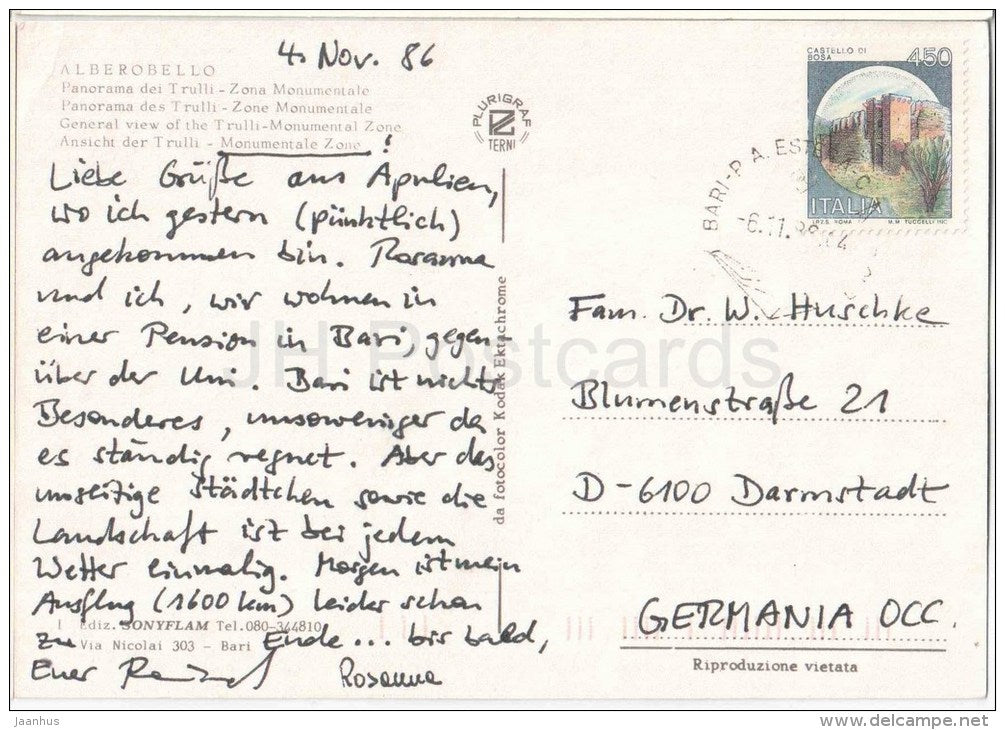 4. Nov. 86
ALBEROBELLO
Panorama dei Trulli - Zona Monumentale
Panorama des Trulli - Zone Monumentale
General view of the Trulli - Monumental Zone
Ansicht der Trulli - Monumentale Zone !
Liebe Grüße aus Apulien,
wo ich gestern (pünktlich)
angekommen bin. Rosanna
und ich, wir wohnen in
einer Pension in Bari, gegen-
über der Uni. Bari ist nichts
Besonderes, umsoweniger da
es ständig regnet. Aber das
umseitige Städtchen sowie die
Landschaft ist bei jedem
Wetter einmalig. Morgen ist mein
Ausflug (1600 km) leider schon
zu Ende... bis bald,
Euer
Rosanna
Ediz. SONYFLAM Tel. 080-344810
Via Nicolai 303 - Bari
PLURIGRAF
TERNI
da fotocolor Kodak Ektachrome
CASTELLO DI
BOSA
450
ITALIA
I.P.Z.S. ROMA
M.M. TUCCELLI
BARI-P.A.
-6.11.86
Fam. Dr. W. Huschke
Blumenstraße 21
D-6100 Darmstadt
GERMANIA OCC.
Riproduzione vietata
JH Postcards
jaanhus
www.delcampe.net